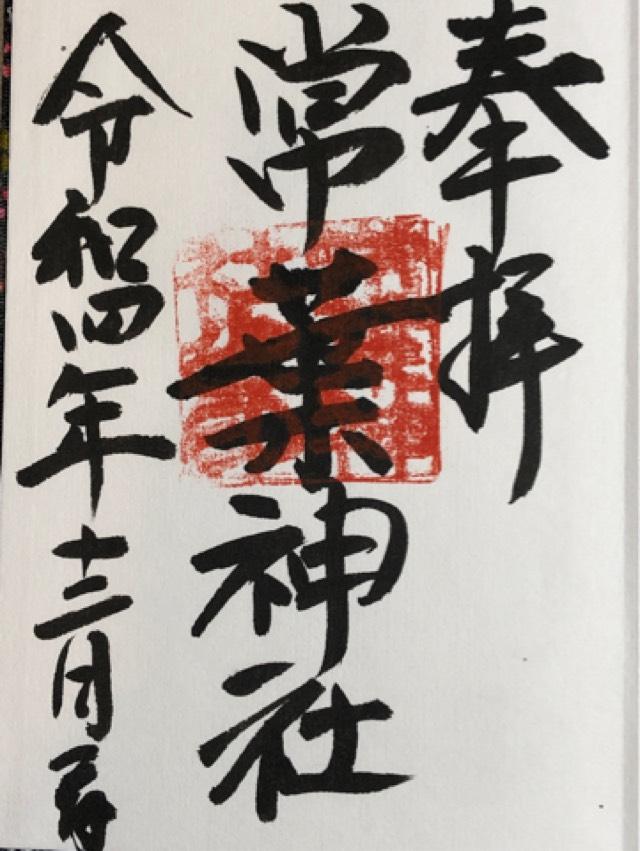 奉拝
常葉神社
令和四年十二月